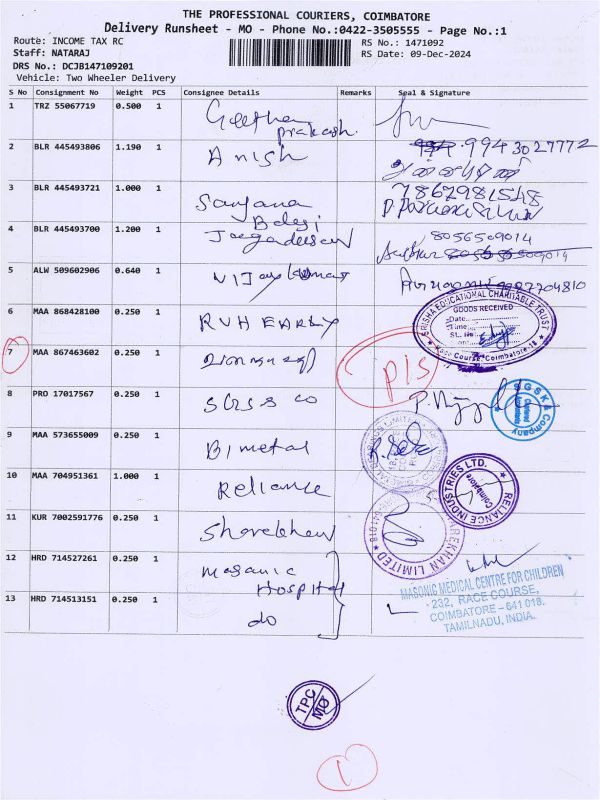 THE PROFESSIONAL COURIERS, COIMBATORE
Delivery Runsheet - MO - Phone No.:0422-3505555 - Page No.:1
Route: INCOME TAX RC
RS No.: 1471092
Staff: NATARAJ
RS Date: 09-Dec-2024
DRS No.: DCJB147109201
Vehicle: Two Wheeler Delivery
S No Consignment No Weight PCS Consignee Details Remarks Seal & Signature
1 TRZ 55067719 0.500 1 Geetha prakash
2 BLR 445493806 1.190 1 Anish 9943027772
3 BLR 445493721 1.000 1 Sanjana 7867981548
4 BLR 445493700 1.200 1 Jaegadeesan 8056509014
5 ALW 509602906 0.640 1 Vijay kumar
6 MAA 868428100 0.250 1 RVH EARLY
SRISHA EDUCATIONAL CHARITABLE TRUST
GOODS RECEIVED
Date
Time
SL. No
Race Course, Coimbatore-18
7 MAA 867463602 0.250 1 P/S
8 PRO 17017567 0.250 1 SGSS CO
SGSK & Company
Chartered Accountants
9 MAA 573655009 0.250 1 Bimetal
10 MAA 704951361 1.000 1 Reliance
RELIANCE INDUSTRIES LTD.
Coimbatore
11 KUR 7002591776 0.250 1 Sharekhan
REKHAN LIMITED
641018
12 HRD 714527261 0.250 1 Masanic Hospital
13 HRD 714513151 0.250 1 do
MASONIC MEDICAL CENTRE FOR CHILDREN
232, RACE COURSE,
COIMBATORE - 641 018.
TAMILNADU, INDIA.
TPC
MØ
1